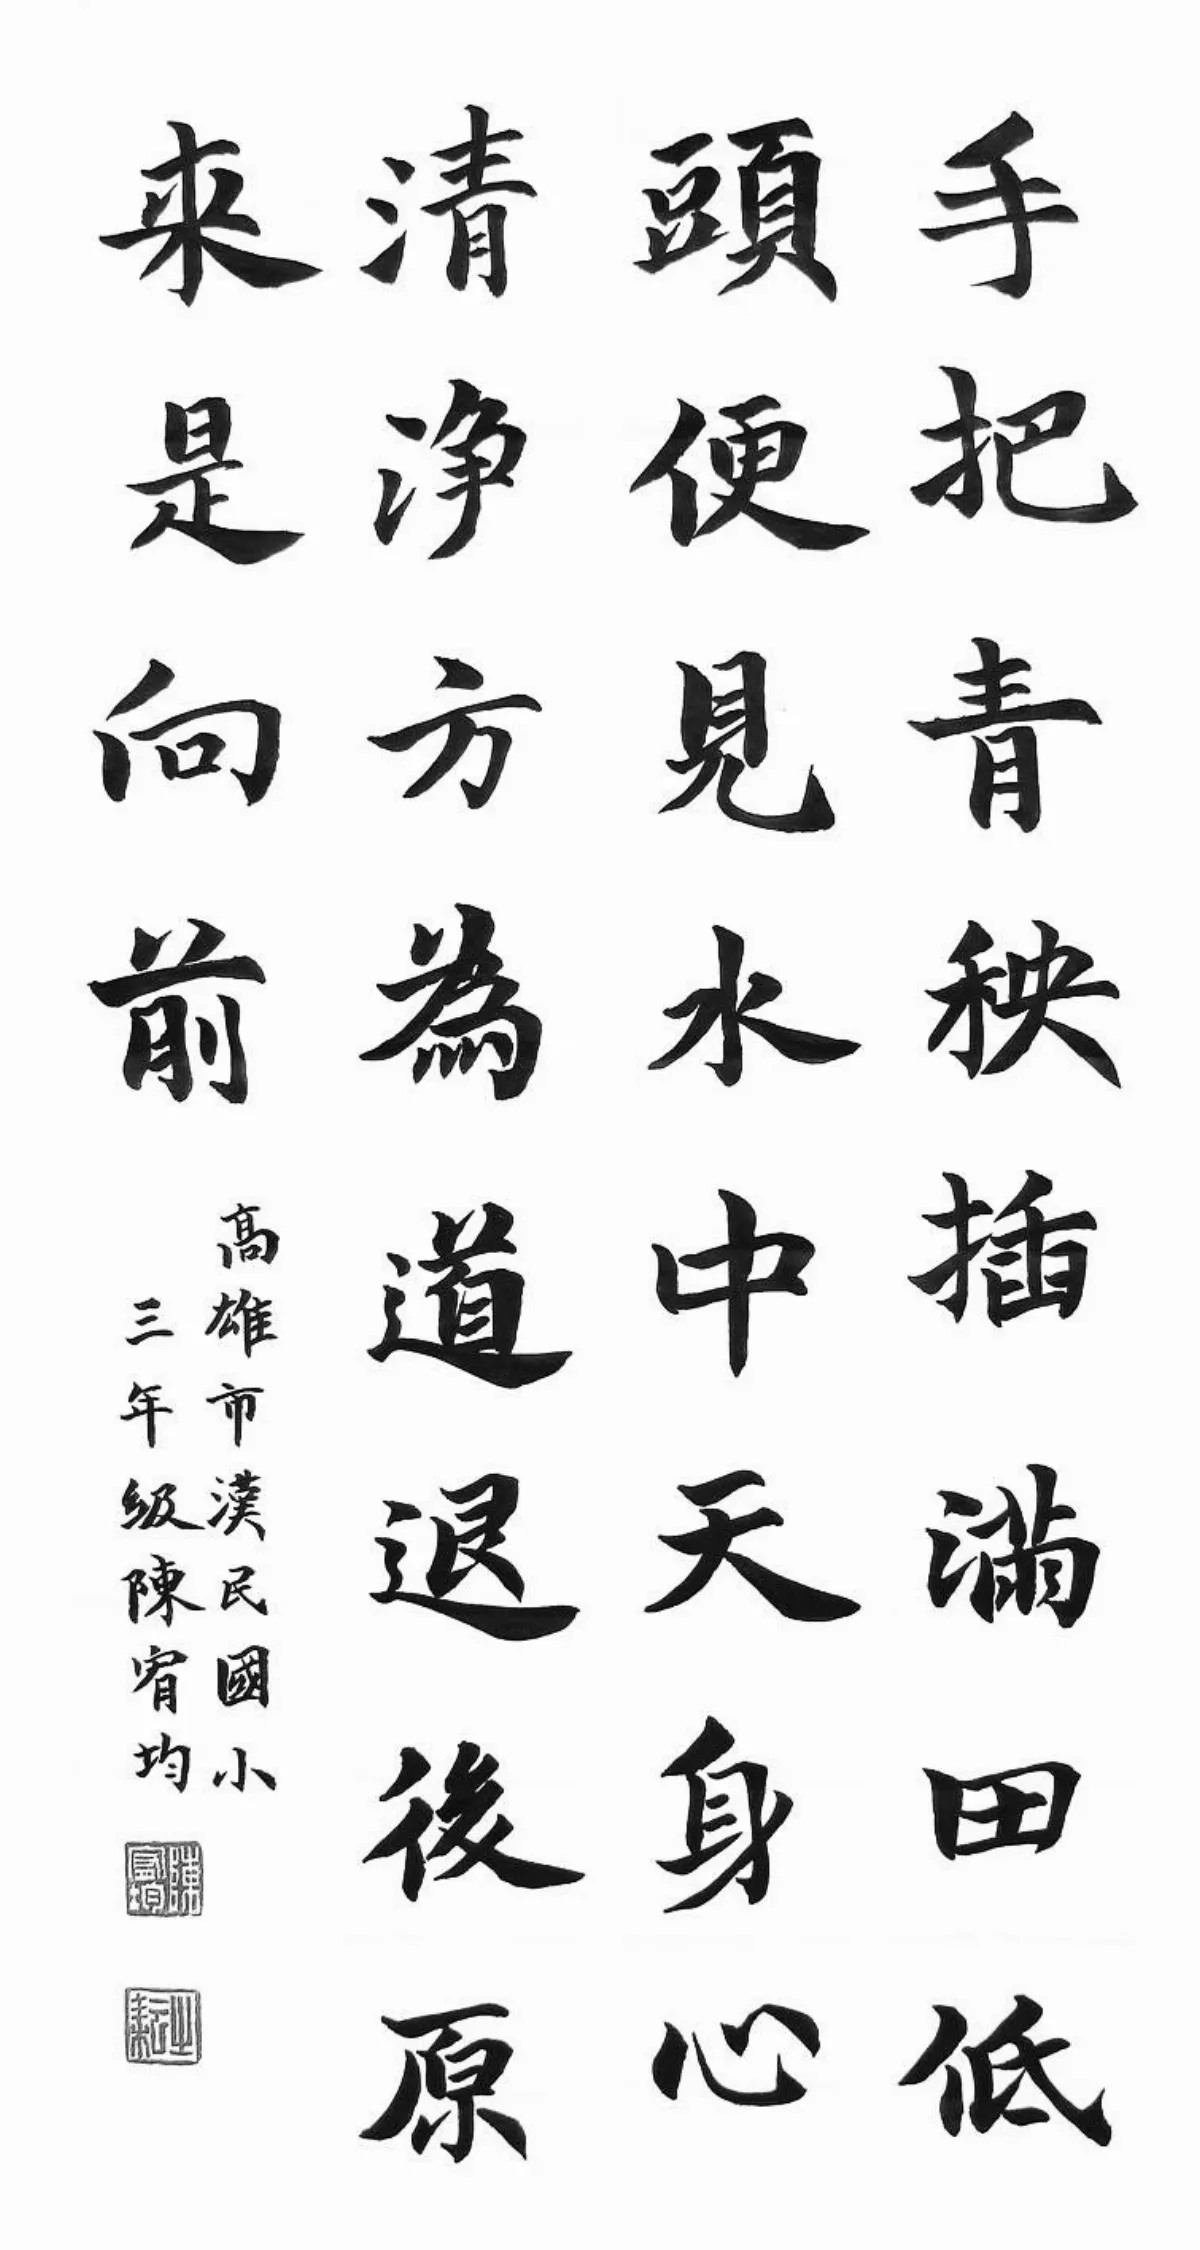 手把青秧插滿田低
頭便見水中天身心
清淨方為道退後原
來是向前
高雄市漢民國小
三年級陳宥均